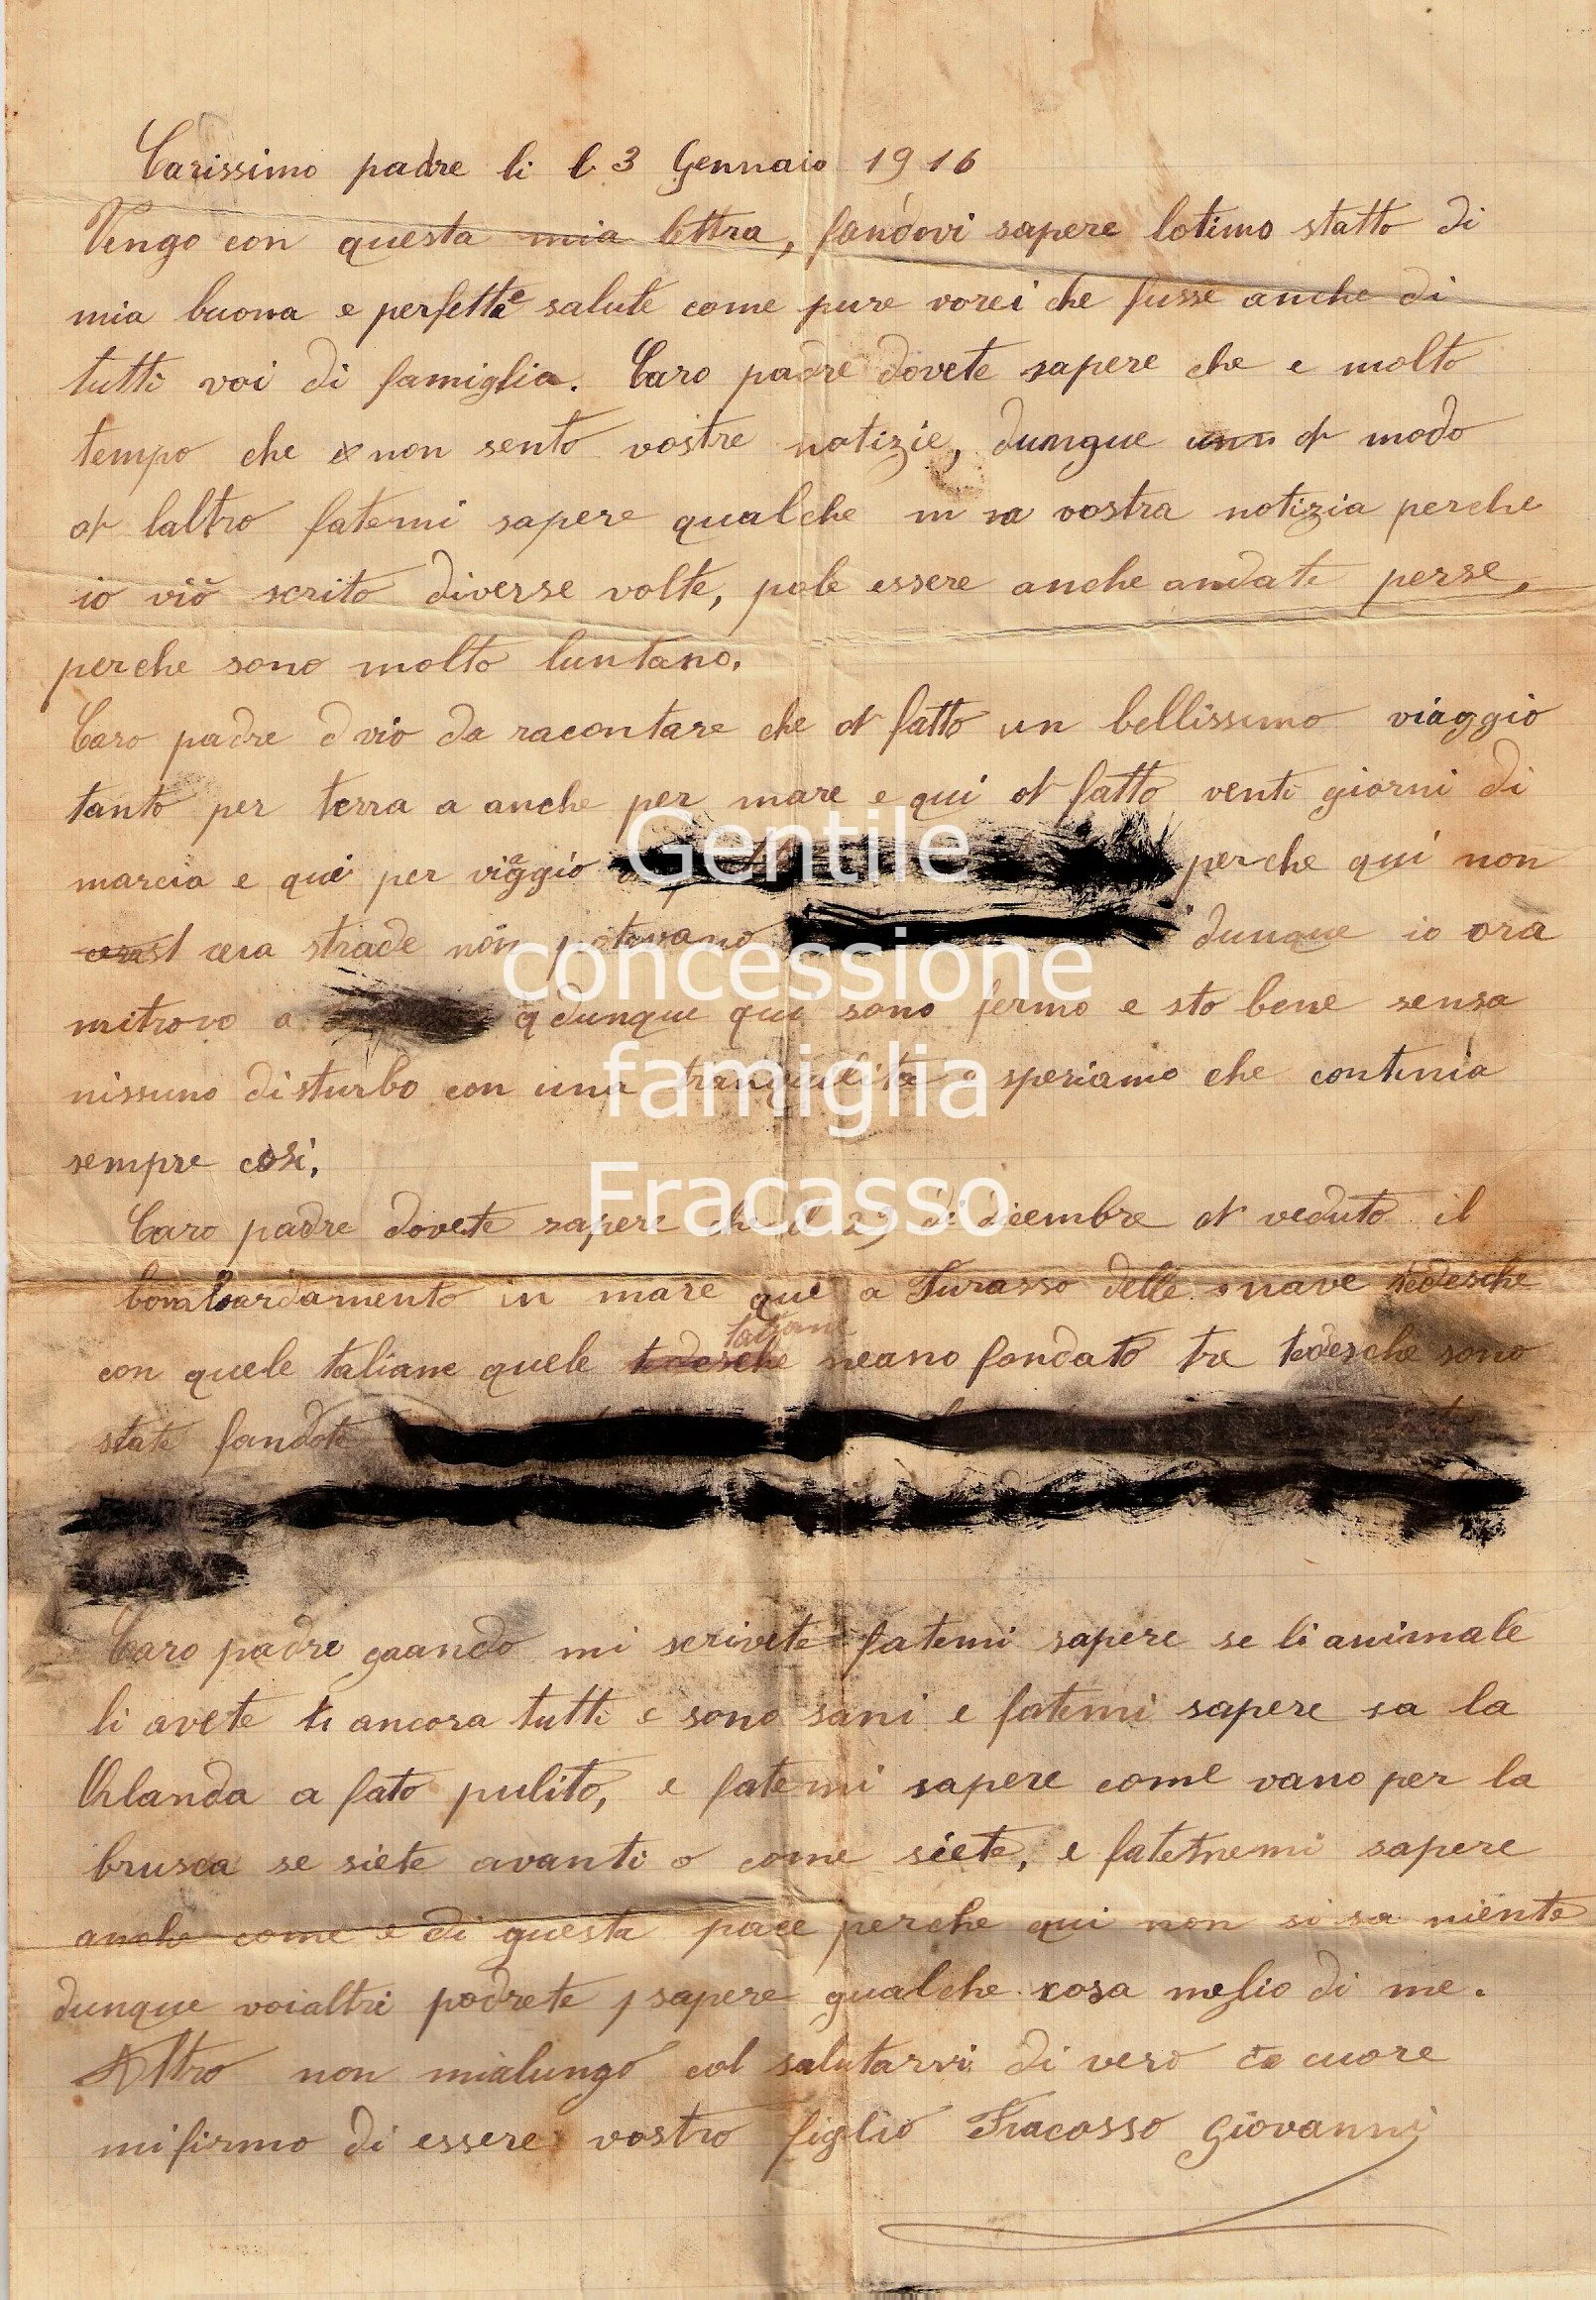 Carissimo padre li l 3 Gennaio 1916
Vengo con questa mia lettra, fandovi sapere lotimo statto di
mia buona e perfetta salute come pure vorei che fusse anche di
tutti voi di famiglia. Caro padre dovete sapere che e molto
tempo che non sento vostre notizie, dunque modo
o laltro fatemi sapere qualche vostra notizia perche
io viò scrito diverse volte, pole essere anche andate perse,
perche sono molto luntano.
Caro padre vio da racontare che o fatto un bellissimo viaggio
tanto per terra a anche per mare e qui o fatto venti giorni di
marcia e qui per viaggio perche qui non
cera strade non potevano dunque io ora
mitrovo a dunque qui sono fermo e sto bene sensa
nissuno disturbo con una tranquilita e speriamo che continia
sempre cosi.
Caro padre dovete sapere che il di dicembre o veduto il
bombardamento in mare que a Turasso delle nave tedesche
con quele taliane quele taliane neano fondato tre tedesche sono
state fondate
Caro padre quando mi scrivete fatemi sapere se li animale
li avete ancora tutti e sono sani e fatemi sapere sa la
Orlanda a fato pulito, e fatemi sapere come vano per la
brusca se siete avanti o come siete, e fatemi sapere
anche come e di questa pace perche qui non si sa niente
dunque voialtri podrete sapere qualche cosa meglio di me.
Altro non mialungo col salutarvi di vero cuore
mifirmo di essere vostro figlio Fracasso Giovanni
Gentile
concessione
famiglia
Fracasso